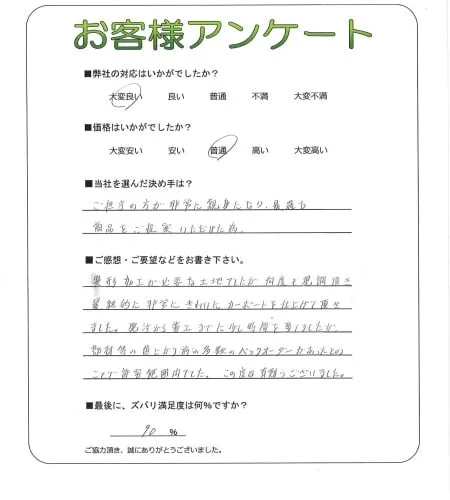 お客様アンケート
■弊社の対応はいかがでしたか?
大変良い 良い 普通 不満 大変不満
■価格はいかがでしたか?
大変安い 安い 普通 高い 大変高い
■当社を選んだ決め手は?
ご担当の方が非常に親身になり、最適な
商品をご提案いただけた為。
■ご感想・ご要望などをお書き下さい。
異形加工が必要な土地でしたが何度も現調頂き
最終的に非常にきれいにカーポートを仕上げて頂き
ました。発注から着工までに少し時間を要しましたが、
部材等の値上がり前の多数のバックオーダーがあったとの
ことで許容範囲内でした。この度は有難うございました。
■最後に、ズバリ満足度は何%ですか?
90 %
ご協力頂き、誠にありがとうございました。